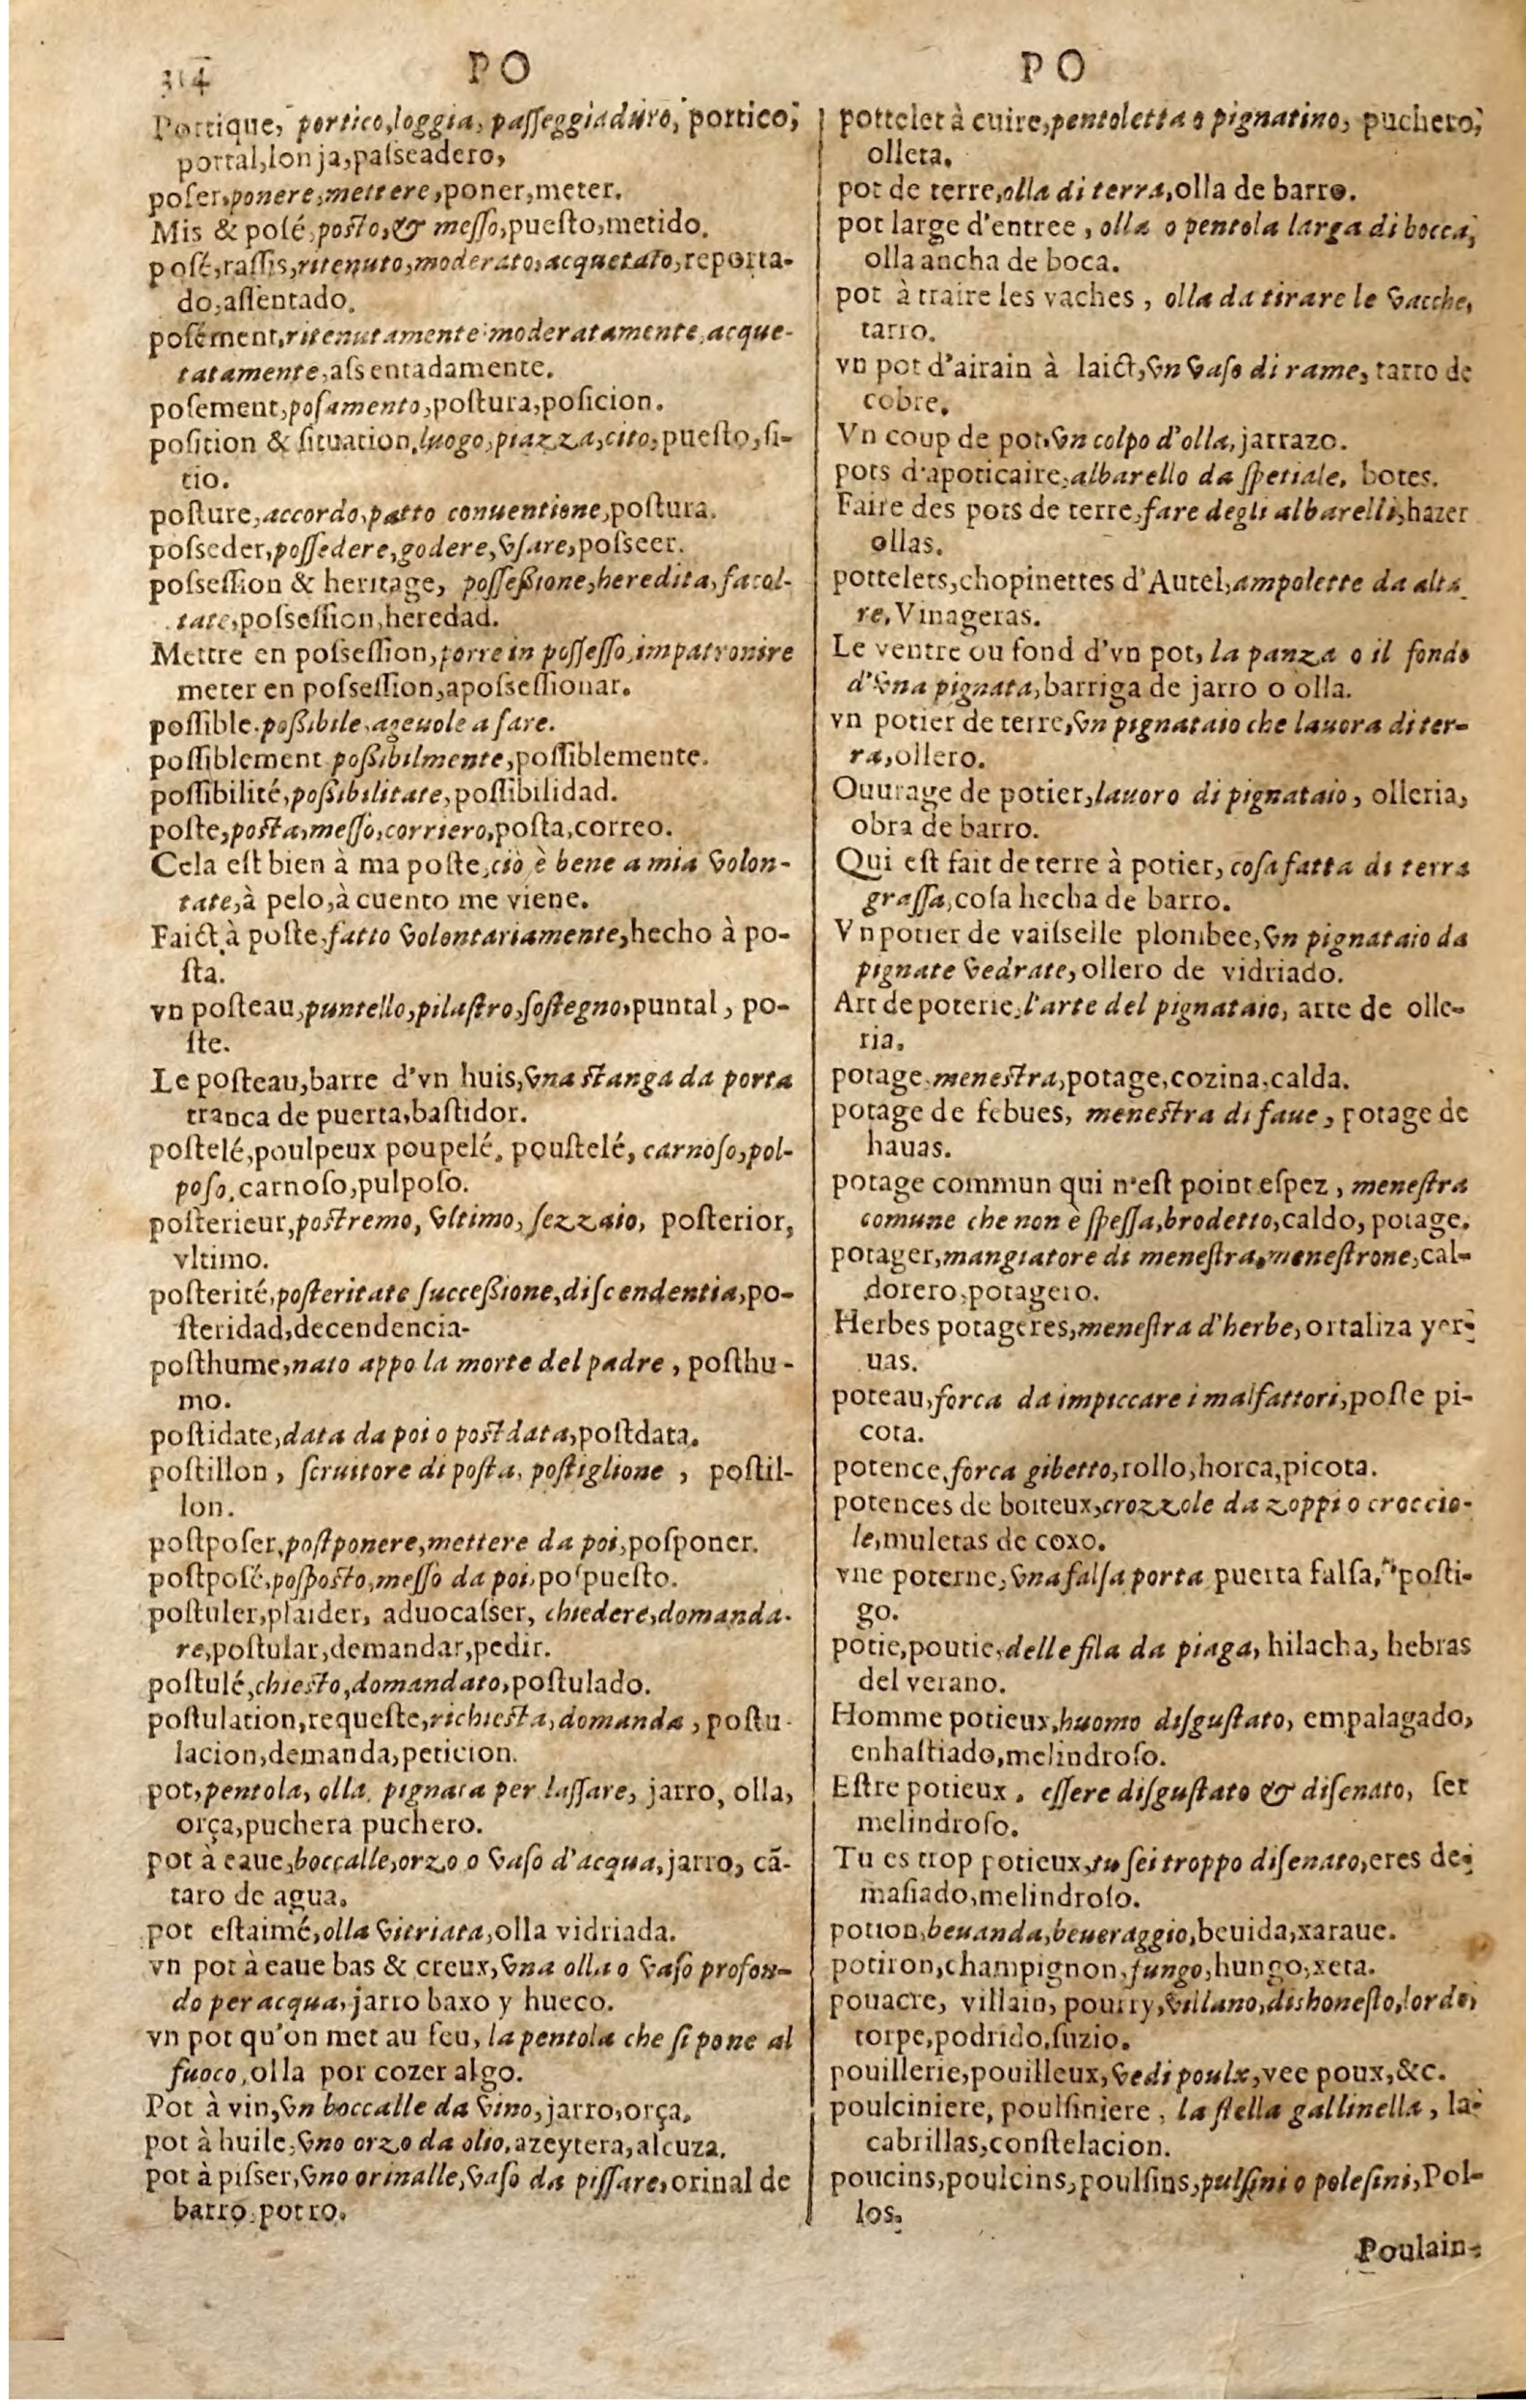 314 PO PO
Portique, portico, loggia, paſſeggiaduro, portico,
portal, lonja, paſseadero,
poſer, ponere, mettere, poner, meter.
Mis & poſé, poſto, & meſſo, pueſto, metido.
poſé, raſſis, ritenuto, moderato, acquetato, reporta-
do, aſſentado.
poſément, ritenutamente moderatamente, acque-
tatamente, aſsentadamente.
poſement, poſamento, poſtura, poſicion.
poſition & ſituation, luogo, piazza, cito, pueſto, ſi-
tio.
poſture, accordo, patto conuentione, poſtura.
poſseder, poſſedere, godere, vſare, poſseer.
poſseſſion & heritage, poſſeßione, heredita, facol-
tate, poſseſſion, heredad.
Mettre en poſseſſion, porre in poſſeſſo, impatronire
meter en poſseſſion, apoſseſſionar.
poſſible. poßibile, ageuole a fare.
poſſiblement poßibilmente, poſſiblemente.
poſſibilité, poßibilitate, poſſibilidad.
poſte, poſta, meſſo, corriero, poſta, correo.
Cela eſt bien à ma poſte, ciò è bene a mia volon-
tate, à pelo, à cuento me viene.
Faict à poſte, fatto volontariamente, hecho à po-
ſta.
vn poſteau, puntello, pilaſtro, ſoſtegno, puntal, po-
ſte.
Le poſteau, barre d'vn huis, vna ſtanga da porta
tranca de puerta, baſtidor.
poſtelé, poulpeux poupelé, pouſtelé, carnoſo, pol-
poſo, carnoſo, pulpoſo.
poſterieur, poſtremo, vltimo, ſezzaio, poſterior,
vltimo.
poſterité, poſteritate ſucceßione, diſcendentia, po-
ſteridad, decendencia-
poſthume, nato appo la morte del padre, poſthu-
mo.
poſtidate, data da poi o poſtdata, poſtdata.
poſtillon, ſeruitore di poſta, poſtiglione, poſtil-
lon.
poſtpoſer, poſtponere, mettere da poi, poſponer.
poſtpoſé, poſpoſto, meſſo da poi, poſpueſto.
poſtuler, plaider, aduocaſser, chiedere, domanda-
re, poſtular, demandar, pedir.
poſtulé, chieſto, domandato, poſtulado.
poſtulation, requeſte, richieſta, domanda, poſtu-
lacion, demanda, peticion.
pot, pentola, olla, pignata per laſſare, jarro, olla,
orça, puchera puchero.
pot à eaue, boccalle, orzo o vaſo d'acqua, jarro, cã-
taro de agua.
pot eſtaimé, olla vitriata, olla vidriada.
vn pot à eaue bas & creux, vna olla o vaſo profon-
do per acqua, jarro baxo y hueco.
vn pot qu'on met au feu, la pentola che ſi pone al
fuoco, olla por cozer algo.
Pot à vin, vn boccalle da vino, jarro, orça.
pot à huile, vno orzo da olio, azeytera, alcuza.
pot à piſser, vno orinalle, vaſo da piſſare, orinal de
barro, potro.
pottelet à cuire, pentoletta o pignatino, puchero,
olleta.
pot de terre, olla di terra, olla de barro.
pot large d'entree, olla o pentola larga di bocca,
olla ancha de boca.
pot à traire les vaches, olla da tirare le vacche,
tarro.
vn pot d'airain à laict, vn vaſo di rame, tarro de
cobre.
Vn coup de pot, vn colpo d'olla, jarrazo.
pots d'apoticaire, albarello da ſpetiale, botes.
Faire des pots de terre, fare degli albarelli, hazer
ollas.
pottelets, chopinettes d'Autel, ampolette da alta
re, Vinageras.
Le ventre ou fond d'vn pot, la panza o il fondo
d'vna pignata, barriga de jarro o olla.
vn potier de terre, vn pignataio che lauora di ter-
ra, ollero.
Ouurage de potier, lauoro di pignataio, olleria,
obra de barro.
Qui eſt fait de terre à potier, coſa fatta di terra
graſſa, coſa hecha de barro.
Vn potier de vaiſselle plombee, vn pignataio da
pignate vedrate, ollero de vidriado.
Art de poterie, l'arte del pignataio, arte de olle-
ria.
potage, meneſtra, potage, cozina, calda.
potage de febues, meneſtra di faue, potage de
hauas.
potage commun qui n'eſt point eſpez, meneſtra
comune che non è ſpeſſa, brodetto, caldo, potage.
potager, mangiatore di meneſtra, meneſtrone, cal-
dorero, potagero.
Herbes potageres, meneſtra d'herbe, ortaliza yer-
uas.
poteau, forca da impiccare i malfattori, poſte pi-
cota.
potence, forca gibetto, rollo, horca, picota.
potences de boiteux, crozzole da zoppi o croccio-
le, muletas de coxo.
vne poterne, vna falſa porta puerta falſa, poſti-
go.
potie, poutie, delle fila da piaga, hilacha, hebras
del verano.
Homme potieux, huomo diſguſtato, empalagado,
enhaſtiado, melindroſo.
Eſtre potieux, eſſere diſguſtato & diſenato, ſer
melindroſo.
Tu es trop potieux, tu ſei troppo diſenato, eres de-
maſiado, melindroſo.
potion, beuanda, beueraggio, beuida, xaraue.
potiron, champignon, fungo, hungo, xeta.
pouacre, villain, pourry, villano, dishoneſto, lordo,
torpe, podrido, ſuzio.
pouillerie, pouilleux, vedi poulx, vee poux, &c.
poulciniere, poulſiniere, la ſtella gallinella, la-
cabrillas, conſtelacion.
poucins, poulcins, poulſins, pulſini o poleſini, Pol-
los.
Poulain-